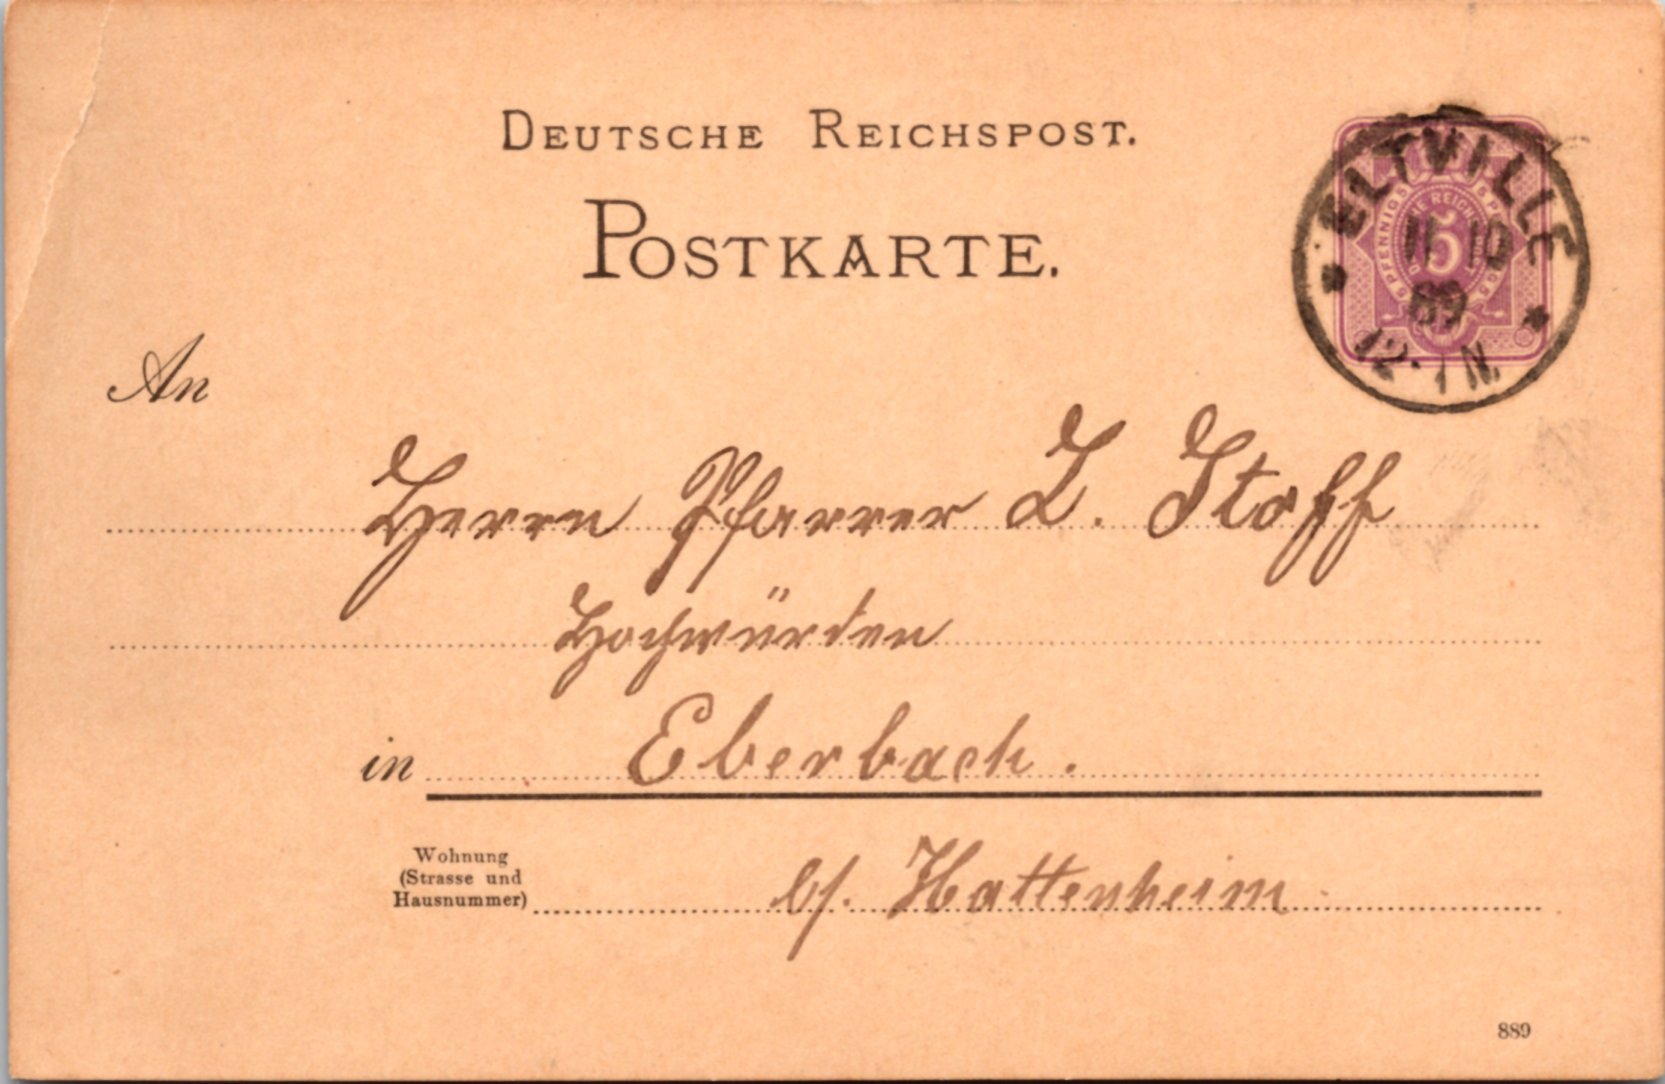 DEUTSCHE REICHSPOST.
POSTKARTE.
5 PFENNIG 5
ELTVILLE
11 10
89
12-1N.
An
Herrn Pfarrer L. Stoff
Hochwürden
in Eberbach.
Wohnung
(Strasse und
Hausnummer)
b/. Hattenheim
889